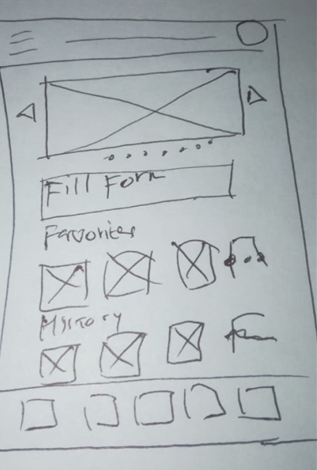 Fill Form
Favorites
History